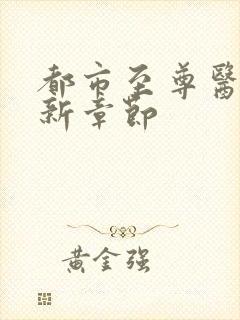 都市至尊醫
新章節
黃金强